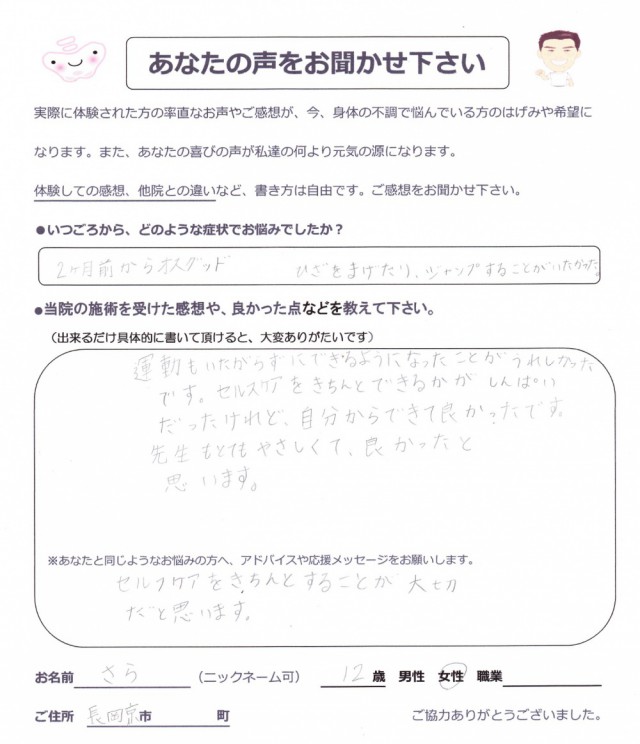 あなたの声をお聞かせ下さい
実際に体験された方の率直なお声やご感想が、今、身体の不調で悩んでいる方のはげみや希望に
なります。また、あなたの喜びの声が私達の何より元気の源になります。
体験しての感想、他院との違いなど、書き方は自由です。ご感想をお聞かせ下さい。
●いつごろから、どのような症状でお悩みでしたか？
2ヶ月前からオスグッド ひざをまげたり、ジャンプすることがいたかった。
●当院の施術を受けた感想や、良かった点などを教えて下さい。
（出来るだけ具体的に書いて頂けると、大変ありがたいです）
運動もいたがらずにできるようになったことがうれしかった
です。セルスケアをきちんとできるかが しんぱい
だったけれど、自分からできて良かったです。
先生もとてもやさしくて、良かったと
思います。
※あなたと同じようなお悩みの方へ、アドバイスや応援メッセージをお願いします。
セルフケアをきちんとすることが 大切
だと思います。
お名前 さら （ニックネーム可） 12 歳 男性 女性 職業
ご住所 長岡京市 町 ご協力ありがとうございました。